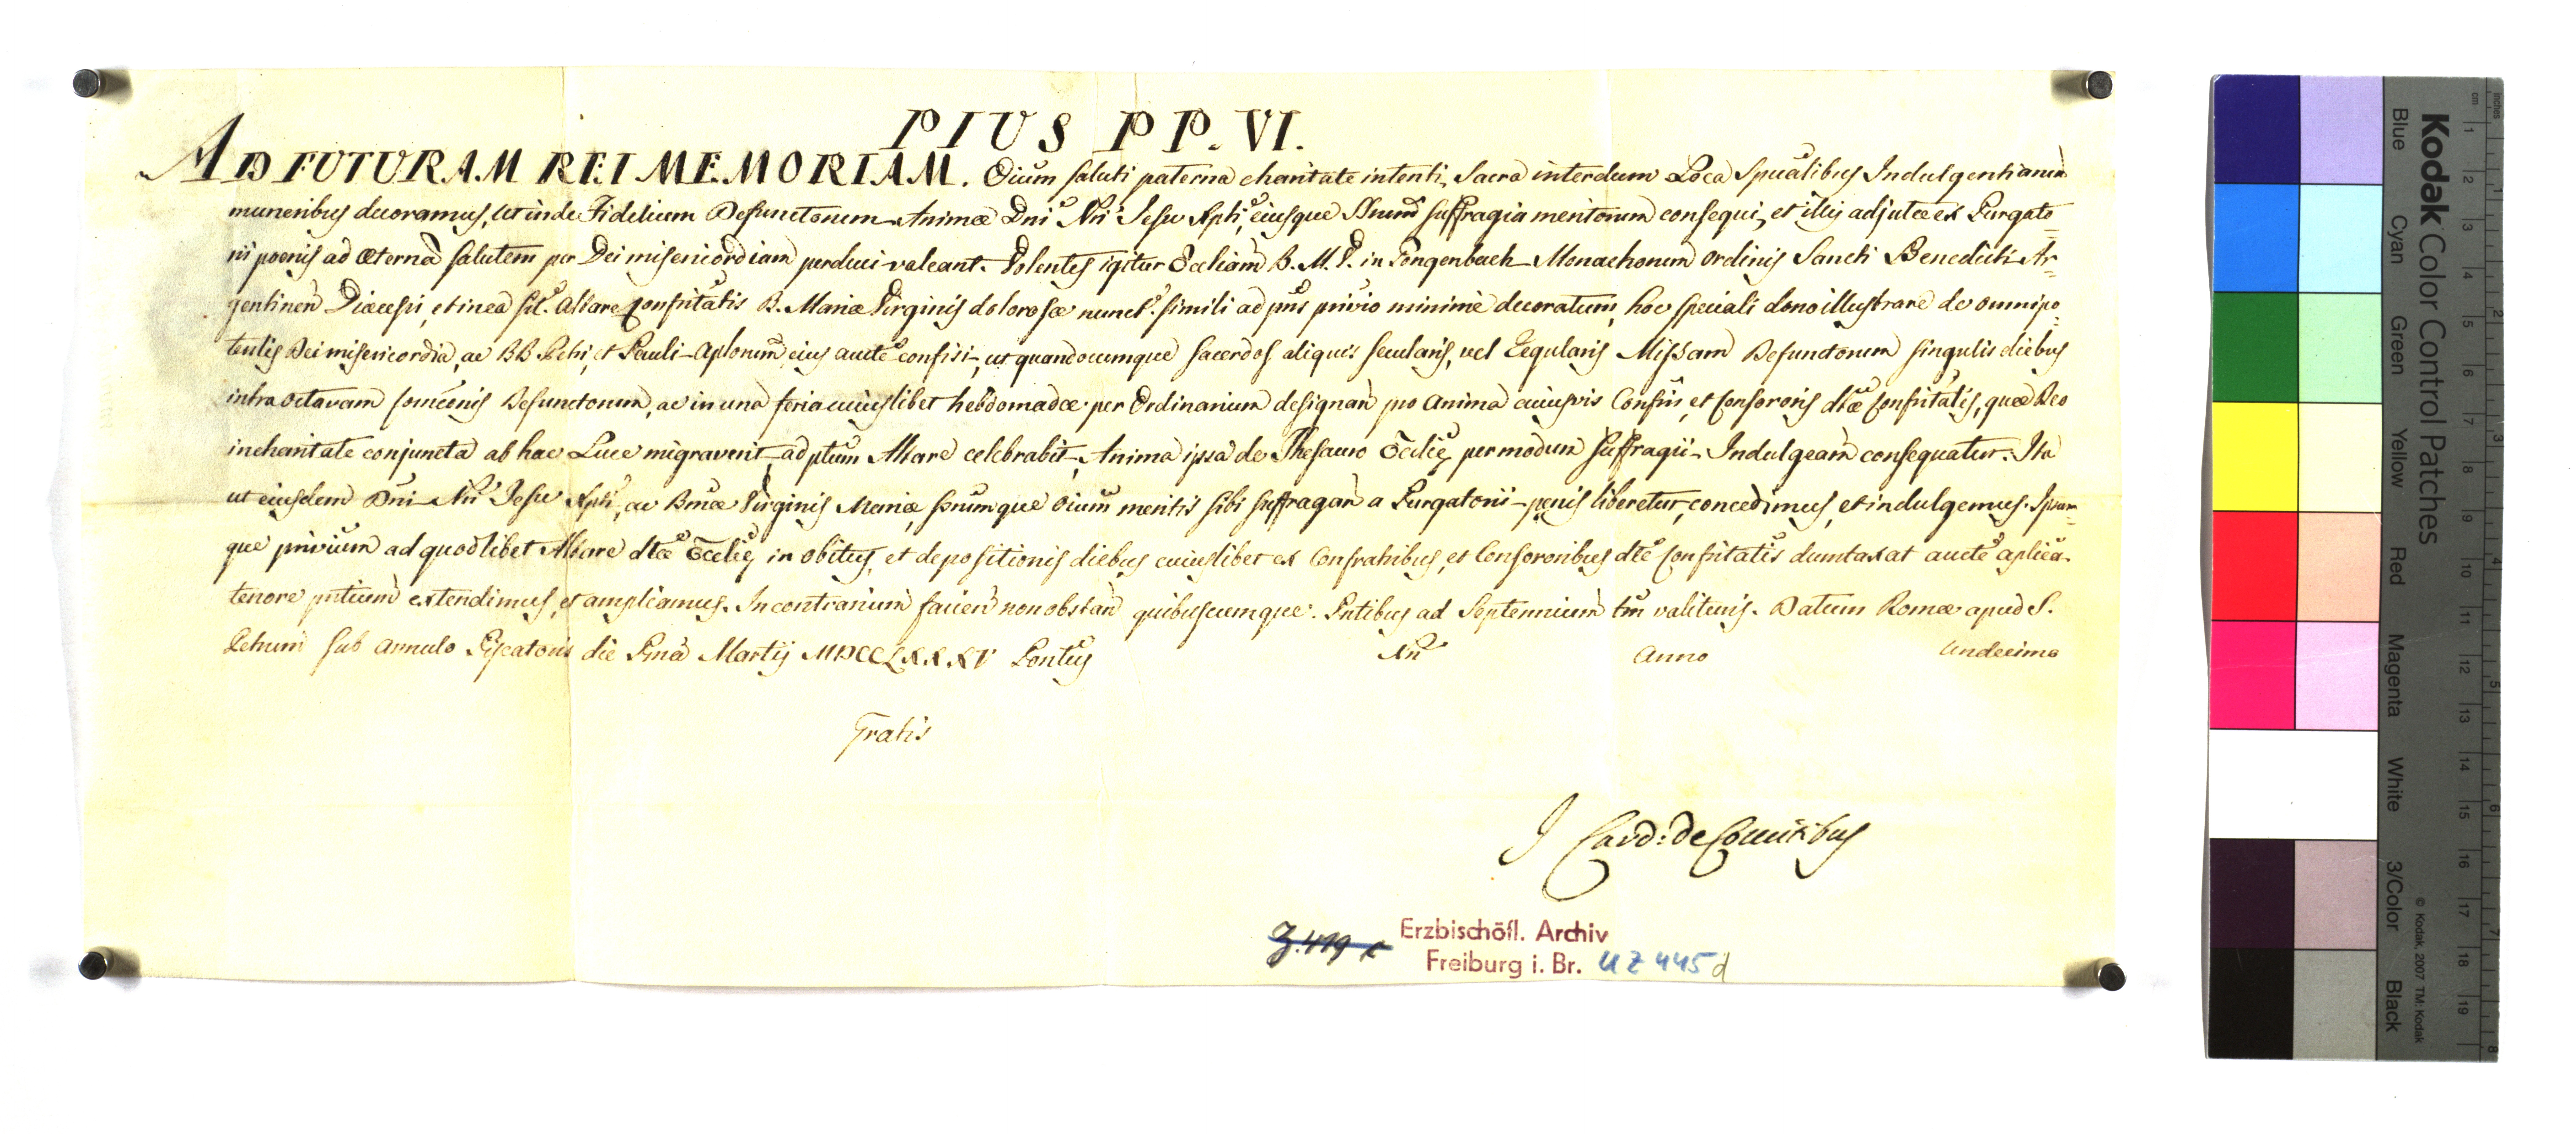 PIUS PP. VI.
AD FUTURAM REI MEMORIAM. Oium saluti paterna charitate intenti, Sacra interdum Loca Spualibus Indulgentiarum
muneribus decoramus, ut inde Fidelium Defunctorum Animæ Dni Nri Jesu Xpti, eiusque SSnum suffragia meritorum consequi, et illis adjutæ ex Purgato=
rii poenis ad æternã salutem per Dei misericordiam perduci valeant. Volentes igitur Eccliam B. M. V. in Gengenbach Monachorum Ordinis Sancti Benedicti Ar=
gentinen Diæcesis, et in ea sit. Altare Confritatis B. Mariæ Virginis dolorosæ nunct. simili ad pns privio minime decoratum, hoc speciali dono illustrare de omnipo=
tentis Dei misericordia, ac BB. Petri, et Pauli Aplorum eius aucte confisi, ut quandocumque Sacerdos aliquis secularis, vel Regularis Missam Defunctorum singulis diebus
infra octavam Comõenis Defunctorum, ac in una feria cuiuslibet hebdomadæ per Ordinarium designan pro Anima cuiusvis Confris, et Consororis dtæ Confritatis, quæ Deo
in charitate conjuncta ab hac Luce migraverit, ad ptum Altare celebrabit, Anima ipsa de Thesauro Ecclię per modum suffragii Indulgeam consequatur. Ita
ut eiusdem Dni Nri Jesu Xpti, ac Bmæ Virginis Mariæ, Srumque Oium meritis sibi suffragan a Purgatorii pęnis liberetur, concedimus, et indulgemus. Ipsum=
que privium ad quodlibet Altare dtæ Ecclię, in obitus, et depositionis diebus cuiuslibet ex Confratribus, et Consororibus dte Confritatis dumtaxat aucte aplica
tenore pntium extendimus, et ampliamus. In contrarium facien non obstan quibuscumque. Pntibus ad Septennium tm valituris. Datum Romæ apud S.
Petrum sub annulo Piscatoris die Pma Martij MDCCLXXXV Pontus Nri Anno Undecimo
Gratis
J Card: de Comitibus
J. 419 c
Erzbischöfl. Archiv
Freiburg i. Br. UZ 445 d
Kodak Color Control Patches
Blue Cyan Green Yellow Red Magenta White 3/Color Black
© Kodak, 2007 TM: Kodak
cm 1 2 3 4 5 6 7 8 9 10 11 12 13 14 15 16 17 18 19
inches 1 2 3 4 5 6 7 8